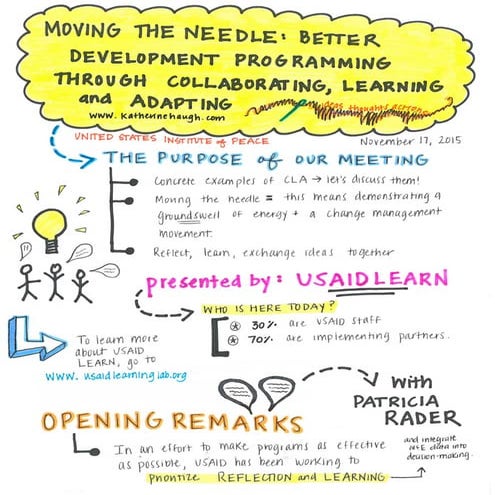 MOVING THE NEEDLE: BETTER
DEVELOPMENT PROGRAMMING
THROUGH COLLABORATING, LEARNING
and ADAPTING
www.katherinehaugh.com
ideas thoughts actions
UNITED STATES INSTITUTE of PEACE
November 17, 2015
THE PURPOSE of OUR MEETING
Concrete examples of CLA → let's discuss them!
Moving the needle = this means demonstrating a
groundswell of energy + a change management
movement.
Reflect, learn, exchange ideas together
presented by: USAID LEARN
WHO IS HERE TODAY?
30% are USAID staff
70% are implementing partners.
To learn more
about USAID
LEARN, go to
www.usaidlearninglab.org
OPENING REMARKS
with
PATRICIA
RADER
In an effort to make programs as effective
as possible, USAID has been working to
prioritize REFLECTION and LEARNING
and integrate
M&E data into
decision-making.